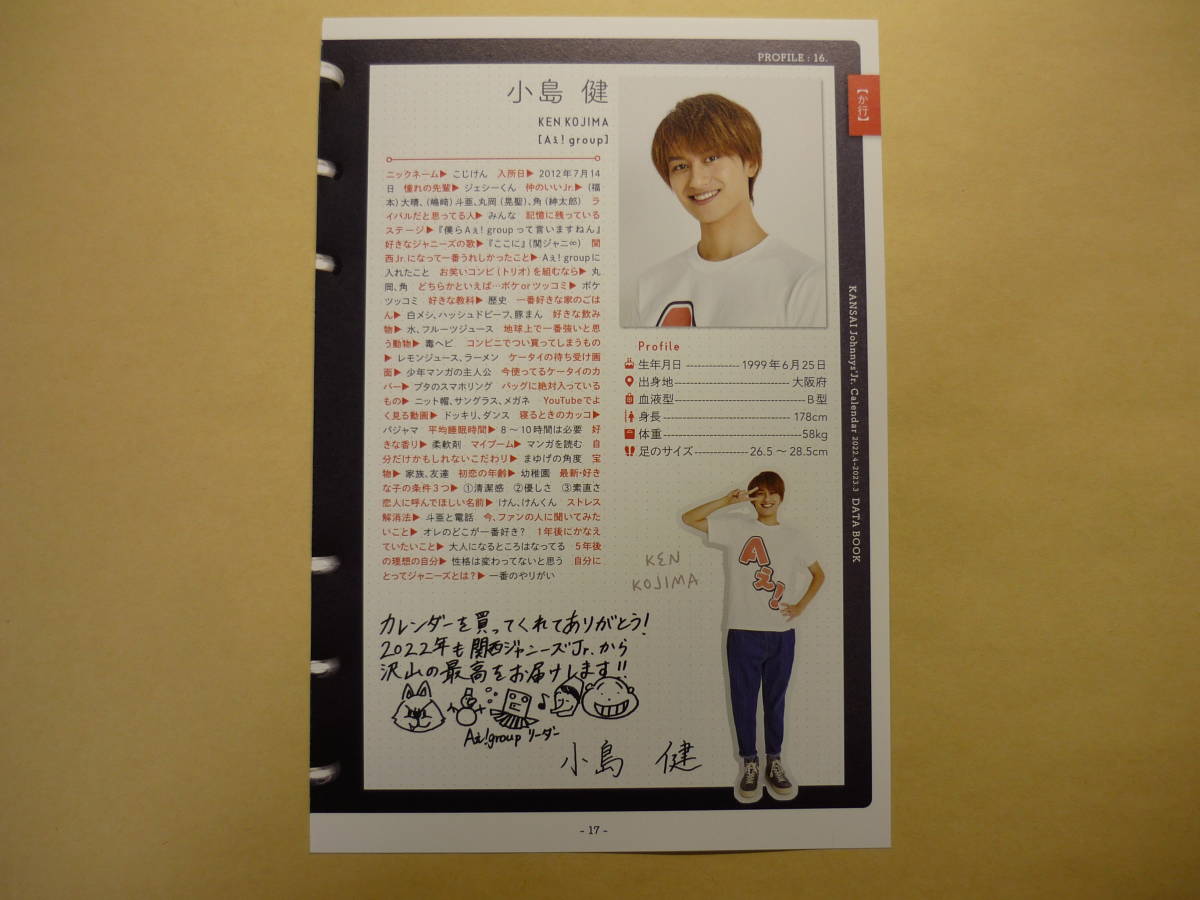 PROFILE : 16.
【か行】
小島 健
KEN KOJIMA
[Aぇ! group]
ニックネーム▶ こじけん 入所日▶ 2012年7月14
日 憧れの先輩▶ ジェシーくん 仲のいいJr.▶ (福
本)大晴、(嶋﨑)斗亜、丸岡(晃聖)、角(紳太郎) ラ
イバルだと思ってる人▶ みんな 記憶に残っている
ステージ▶『僕らAぇ! groupって言いますねん』
好きなジャニーズの歌▶『ここに』(関ジャニ∞) 関
西Jr.になって一番うれしかったこと▶ Aぇ! groupに
入れたこと お笑いコンビ(トリオ)を組むなら▶ 丸
岡、角 どちらかといえば…ボケorツッコミ▶ ボケ
ツッコミ 好きな教科▶ 歴史 一番好きな家のごは
ん▶ 白メシ、ハッシュドビーフ、豚まん 好きな飲み
物▶ 水、フルーツジュース 地球上で一番強いと思
う動物▶ 毒ヘビ コンビニでつい買ってしまうもの
▶ レモンジュース、ラーメン ケータイの待ち受け画
面▶ 少年マンガの主人公 今使ってるケータイのカ
バー▶ ブタのスマホリング バッグに絶対入っている
もの▶ ニット帽、サングラス、メガネ YouTubeでよ
く見る動画▶ ドッキリ、ダンス 寝るときのカッコ▶
パジャマ 平均睡眠時間▶ 8～10時間は必要 好
きな香り▶ 柔軟剤 マイブーム▶ マンガを読む 自
分だけかもしれないこだわり▶ まゆげの角度 宝
物▶ 家族、友達 初恋の年齢▶ 幼稚園 最新・好き
な子の条件3つ▶ ①清潔感 ②優しさ ③素直さ
恋人に呼んでほしい名前▶ けん、けんくん ストレス
解消法▶ 斗亜と電話 今、ファンの人に聞いてみた
いこと▶ オレのどこが一番好き? 1年後にかなえ
ていたいこと▶ 大人になるところはなってる 5年後
の理想の自分▶ 性格は変わってないと思う 自分に
とってジャニーズとは?▶ 一番のやりがい
Profile
生年月日 -------------- 1999年6月25日
出身地------------------------------ 大阪府
血液型----------------------------------B型
身長 --------------------------------- 178cm
体重 ------------------------------------58kg
足のサイズ-------------- 26.5～28.5cm
Aぇ!
KEN
KOJIMA
カレンダーを買ってくれてありがとう!
2022年も関西ジャニーズJr.から
沢山の最高をお届けします!!
Aぇ!group リーダー
小島 健
KANSAI Johnnys'Jr. Calendar 2022.4-2023.3 DATA BOOK
- 17 -